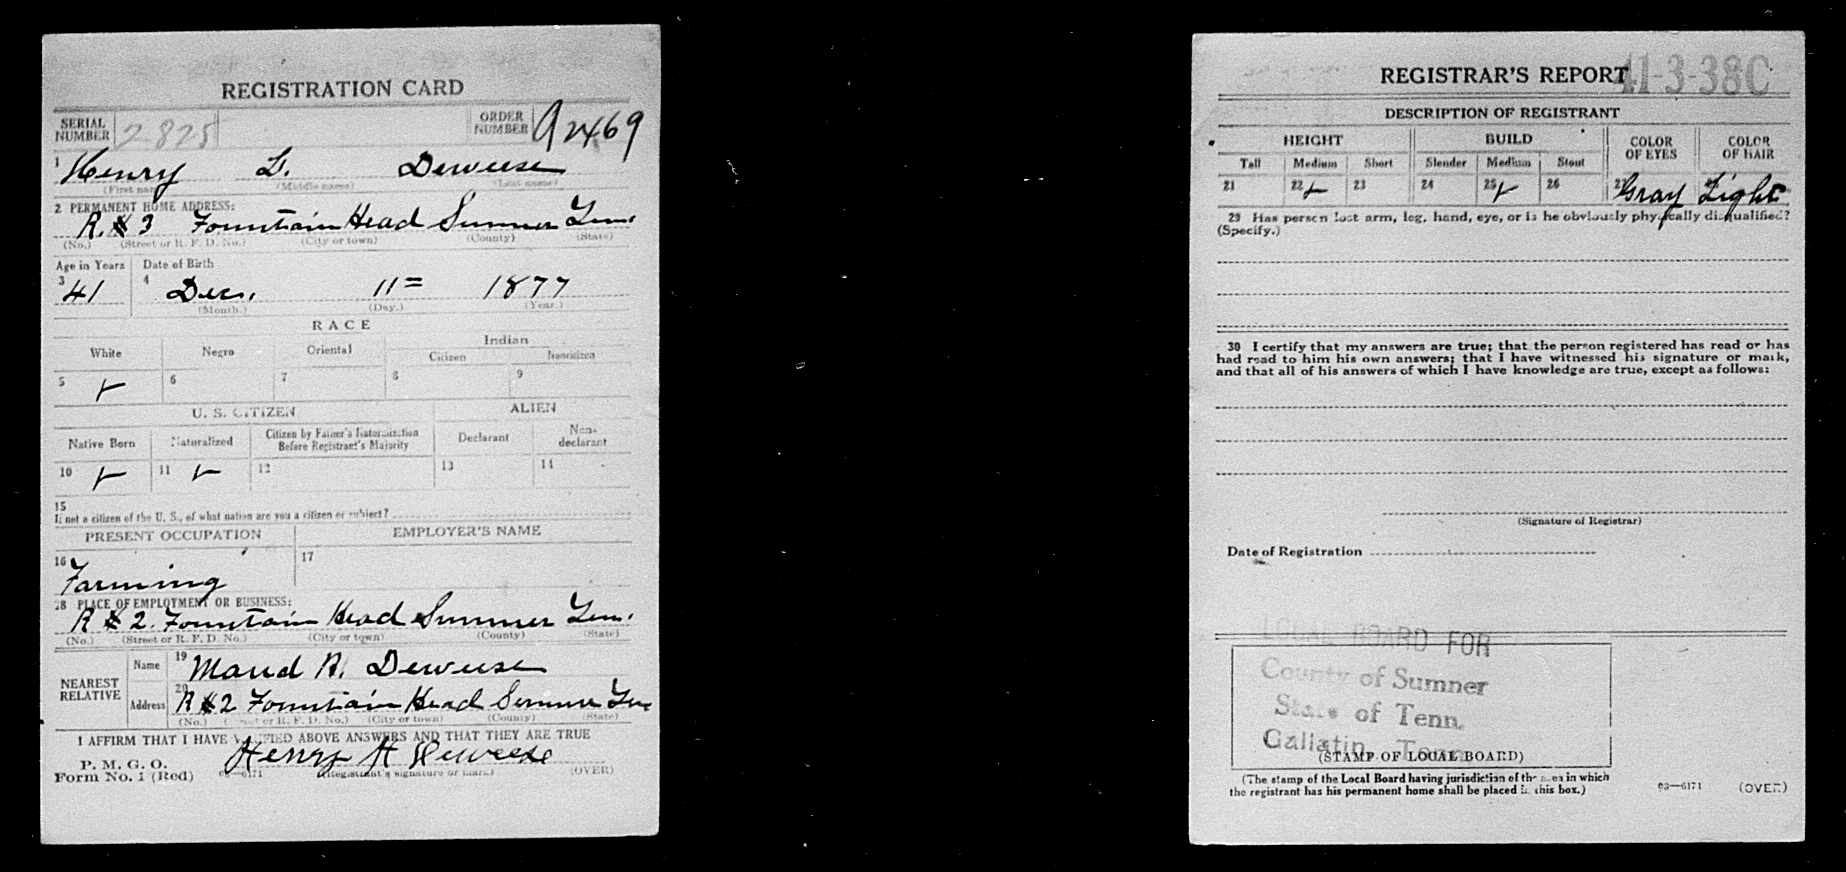 REGISTRATION CARD
SERIAL NUMBER 2825 ORDER NUMBER A2469
1 Henry D. Deweese
(First name) (Middle name) (Last name)
2 PERMANENT HOME ADDRESS:
R. # 3 Fountain Head Sumner Tenn.
(No.) (Street or R. F. D. No.) (City or town) (County) (State)
Age in Years Date of Birth
3 41 4 Dec. 11= 1877
(Month.) (Day.) (Year.)
RACE
White Negro Oriental Indian
Citizen Noncitizen
5 6 7 8 9
U. S. CITIZEN ALIEN
Native Born Naturalized Citizen by Father's Naturalization Before Registrant's Majority Declarant Non-declarant
10 11 12 13 14
15
If not a citizen of the U. S., of what nation are you a citizen or subject?
PRESENT OCCUPATION EMPLOYER'S NAME
16 Farming 17
18 PLACE OF EMPLOYMENT OR BUSINESS:
R # 2. Fountain Head Sumner Tenn.
(No.) (Street or R. F. D. No.) (City or town) (County) (State)
NEAREST RELATIVE Name 19 Maud A. Deweese
Address 20 R # 2 Fountain Head Sumner Tenn
(No.) (Street or R. F. D. No.) (City or town) (County) (State)
I AFFIRM THAT I HAVE VERIFIED ABOVE ANSWERS AND THAT THEY ARE TRUE
P. M. G. O.
Form No. 1 (Red) 03—6171 Henry H Deweese
(Registrant's signature or mark) (OVER)
REGISTRAR'S REPORT 41-3-38C
DESCRIPTION OF REGISTRANT
HEIGHT BUILD COLOR OF EYES COLOR OF HAIR
Tall Medium Short Slender Medium Stout
21 22 23 24 25 26 27 Gray 28 Light
29 Has person lost arm, leg, hand, eye, or is he obviously physically disqualified?
(Specify.)
30 I certify that my answers are true; that the person registered has read or has
had read to him his own answers; that I have witnessed his signature or mark,
and that all of his answers of which I have knowledge are true, except as follows:
(Signature of Registrar)
Date of Registration
LOCAL BOARD FOR
County of Sumner
State of Tenn.
Gallatin, Tenn.
(STAMP OF LOCAL BOARD)
(The stamp of the Local Board having jurisdiction of the area in which
the registrant has his permanent home shall be placed in this box.)
03—6171 (OVER)